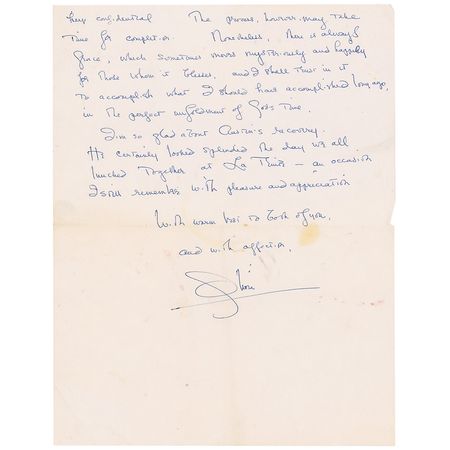 keep confidential. The process, however, may take
time for completion. Nonetheless, there is always
Grace, which sometimes moves mysteriously and happily
for those whom it blesses, and I shall trust in it
to accomplish what I should have accomplished long ago,
in the perfect unfoldment of God's time.
I'm so glad about Austin's recovery.
He certainly looked splendid the day we all
lunched together at La — an occasion
I still remember with pleasure and appreciation
With warm to both of you,
and with affection,